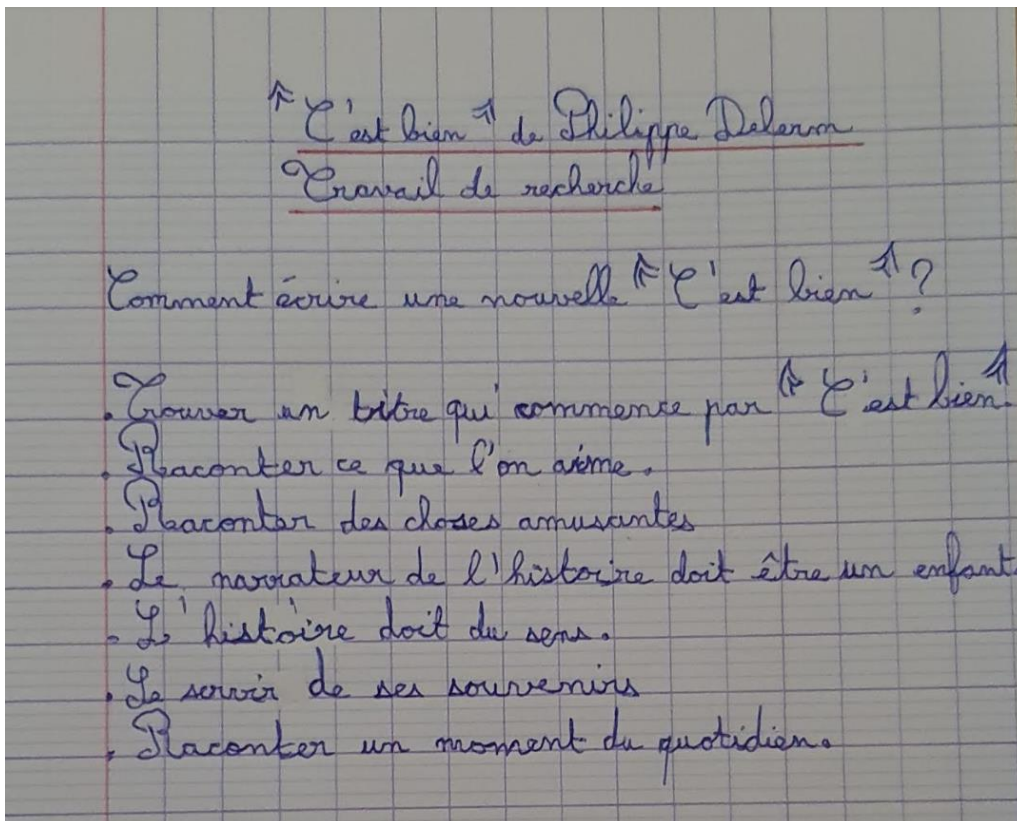 "C'est bien" de Philippe Delerm
Travail de recherche
Comment écrire une nouvelle "C'est bien" ?
. Trouver un titre qui commence par "C'est bien".
. Raconter ce que l'on aime.
. Raconter des choses amusantes
. Le narrateur de l'histoire doit être un enfant.
. L'histoire doit du sens.
. Se servir de ses souvenirs
. Raconter un moment du quotidien.